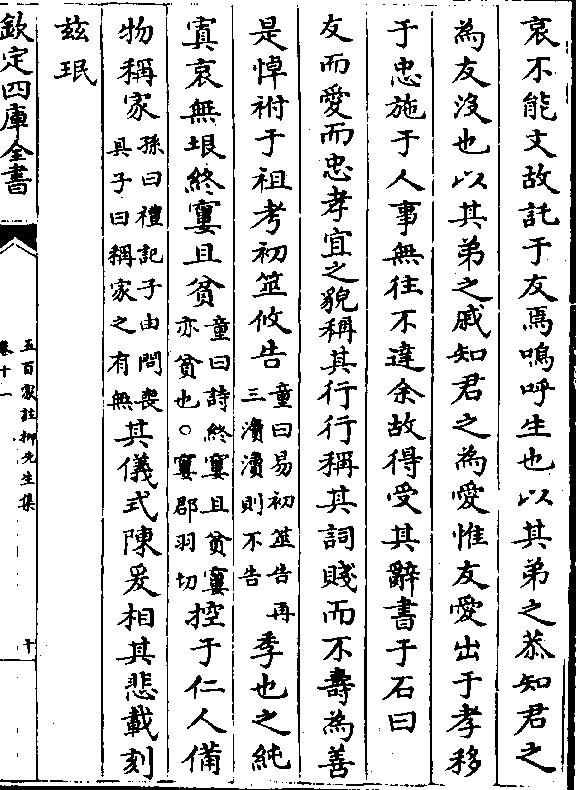 哀不能文故託于友焉嗚呼生也以其弟之恭知君之
為友沒也以其弟之戚知君之為愛惟友愛出于孝移
于忠施于人事無往不達余故得受其辭書于石曰
友而愛而忠孝宜之貌稱其行行稱其詞賤而不壽為善
是悼祔于祖考初筮攸告童曰易初筮告再三瀆瀆則不告季也之純
寘哀無垠終窶且貧童曰詩終窶且貧窶亦貧也○窶郡羽切控于仁人備
物稱家孫曰禮記子由問喪具子曰稱家之有無其儀式陳爰相其悲載刻
玆珉
欽定四庫全書
五百家註柳先生集
卷十一
十